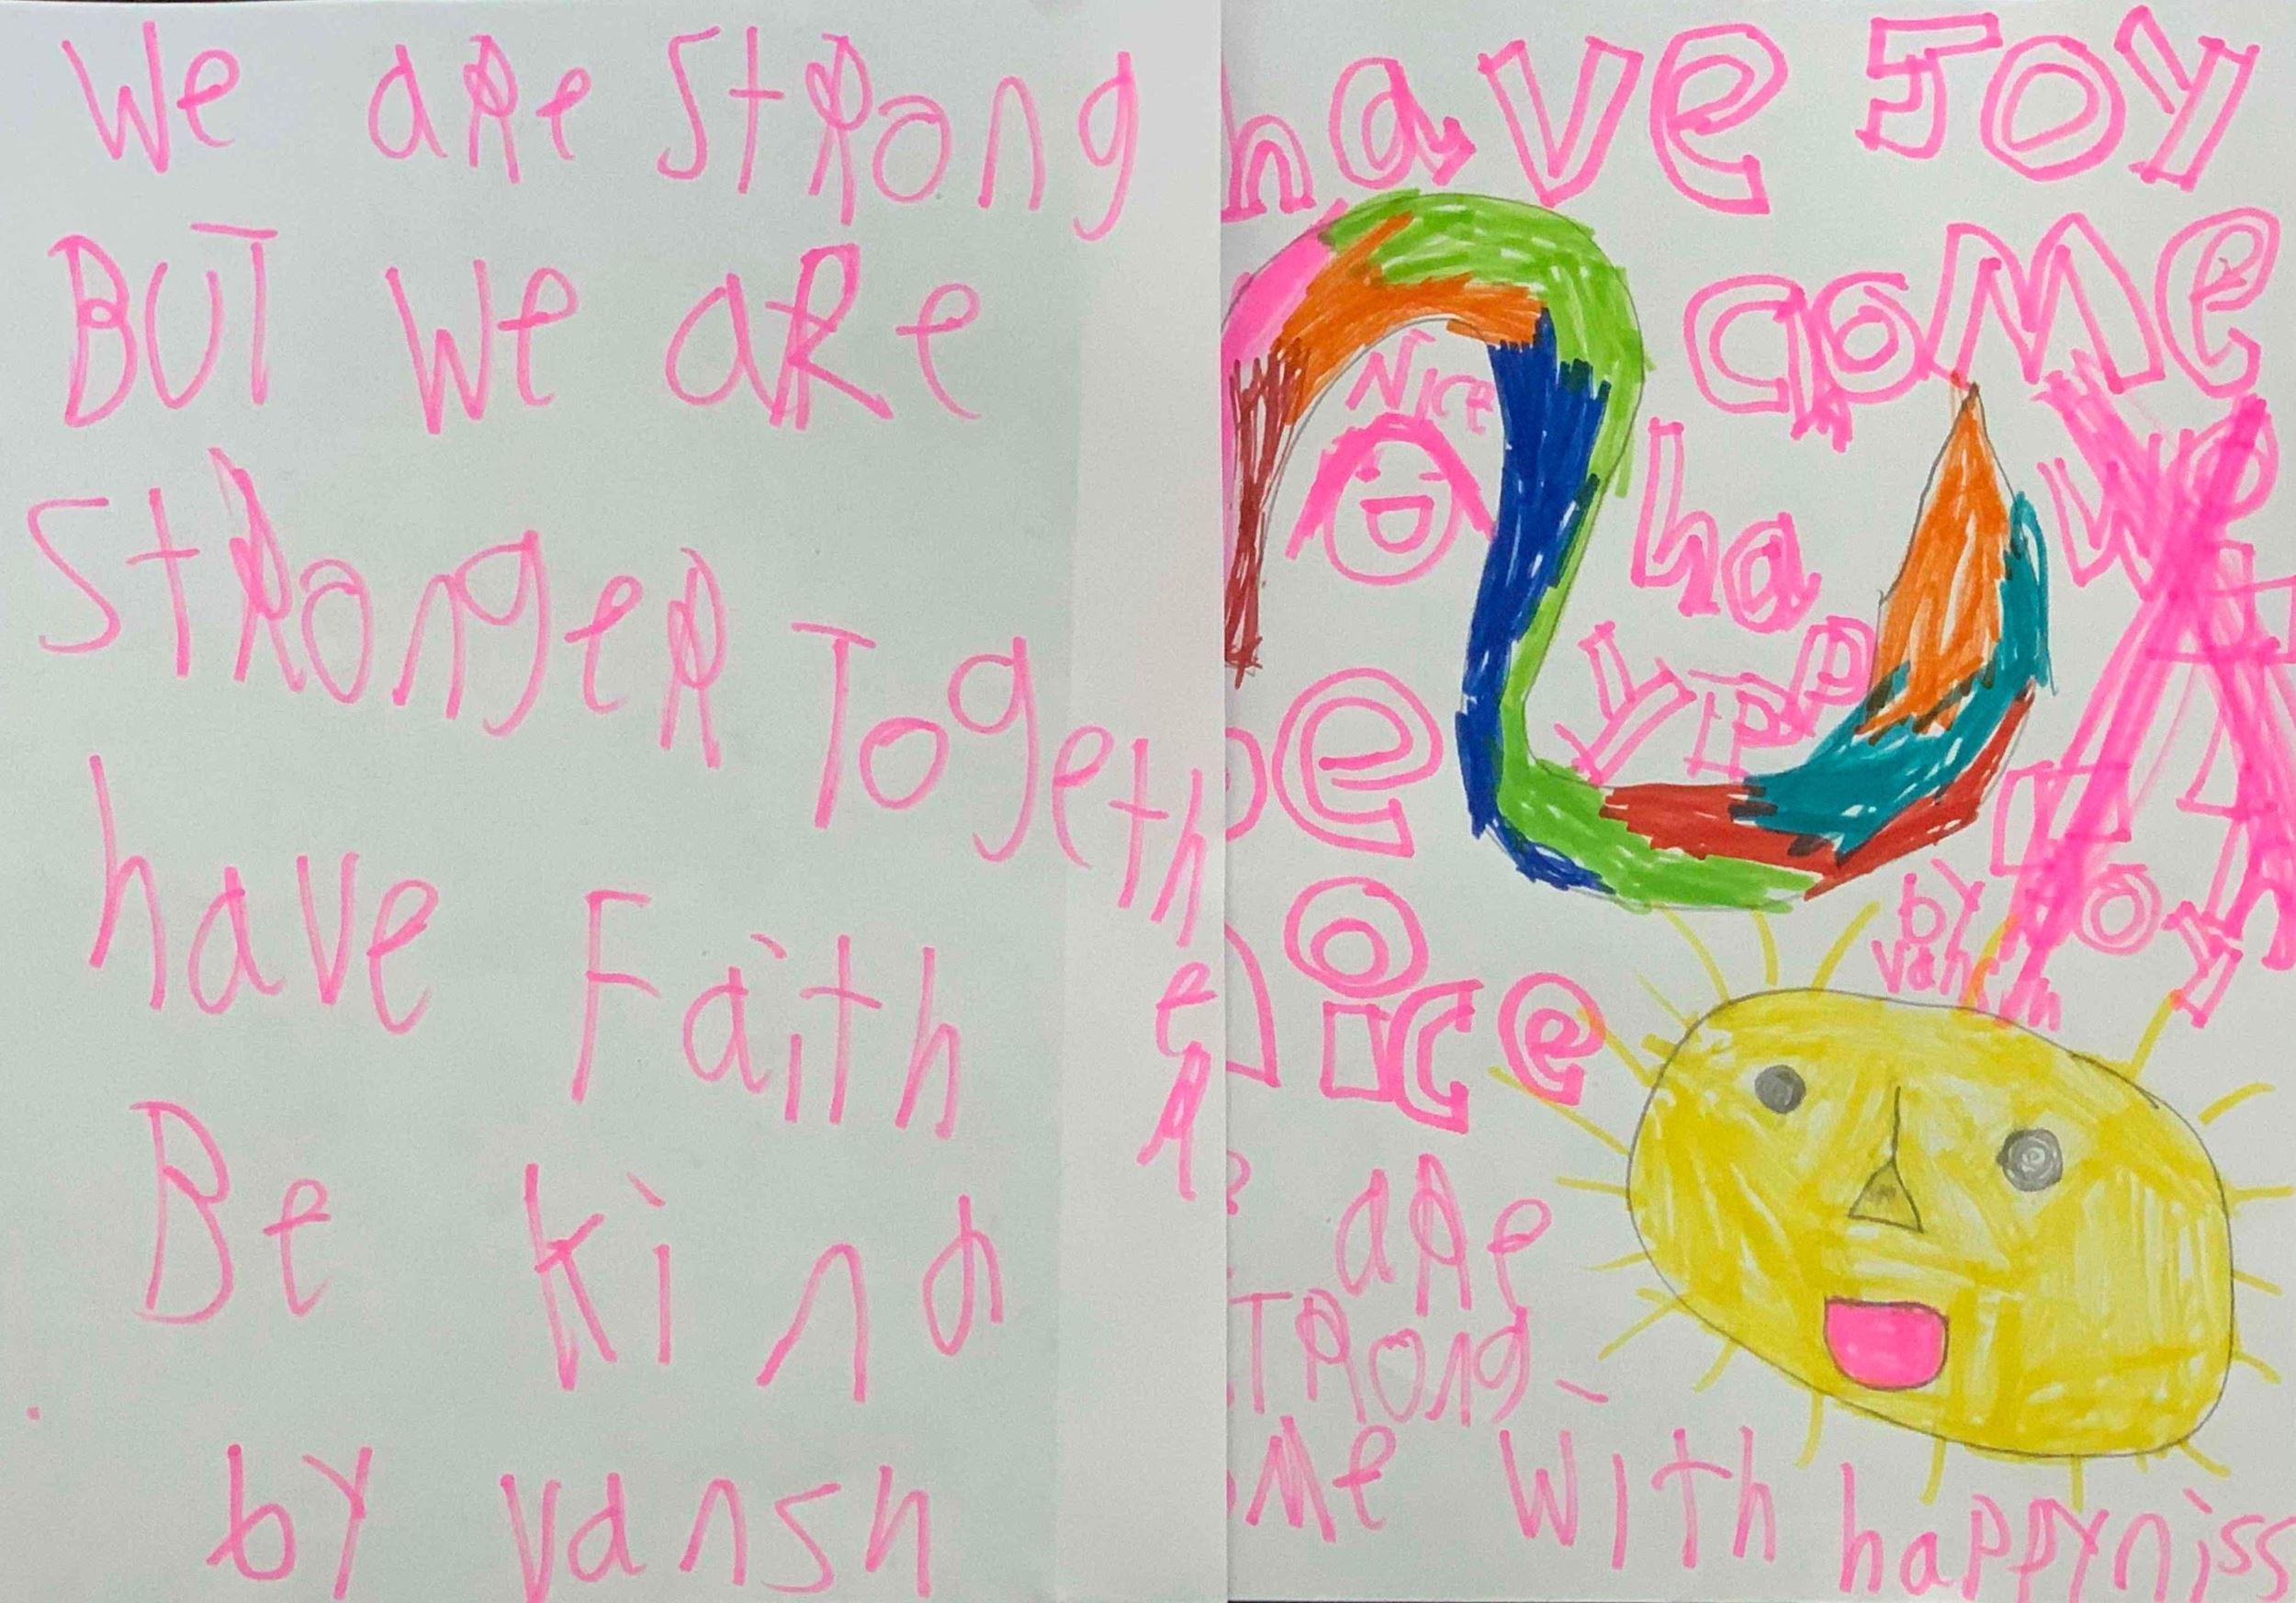 We aRe StRong
BUT We aRe
StRongeR TogetheR
have Faith
Be kind
by vansh
have JOY
come
Nice
ha
YPP
be
nice
by
vansh
aRe
TRong
me with happyniss